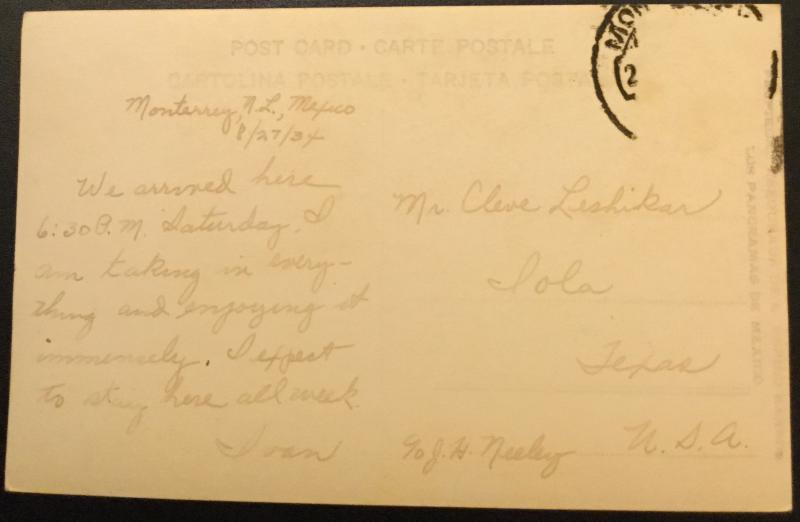 POST CARD · CARTE POSTALE
CARTOLINA POSTALE · TARJETA POSTAL
Monterrey, N.L., Mexico
8/27/34
We arrived here
6:30 P.M. Saturday. I
am taking in every-
thing and enjoying it
immensely. I expect
to stay here all week.
Ivan
Mr. Cleve Leshikar
Iola
Texas
U.S.A.
c/o J. H. Neeley
MON
2
LOS PANORAMAS DE MEXICO